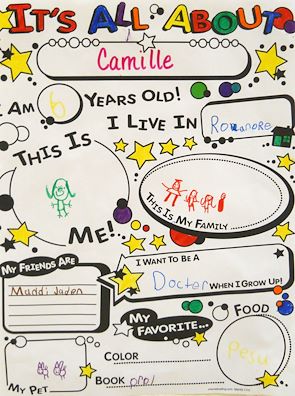 IT'S ALL ABOUT
Camille
I AM 6 YEARS OLD!
I LIVE IN Romanore
THIS IS
ME!
THIS IS MY FAMILY
MY FRIENDS ARE
I WANT TO BE A
Doctor WHEN I GROW UP!
MY FAVORITE...
FOOD
Pesu
COLOR
BOOK
MY PET